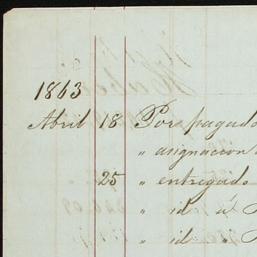 1863
Abril 18 Por pagado
" asignacion
25 " entregado
" id á
" id